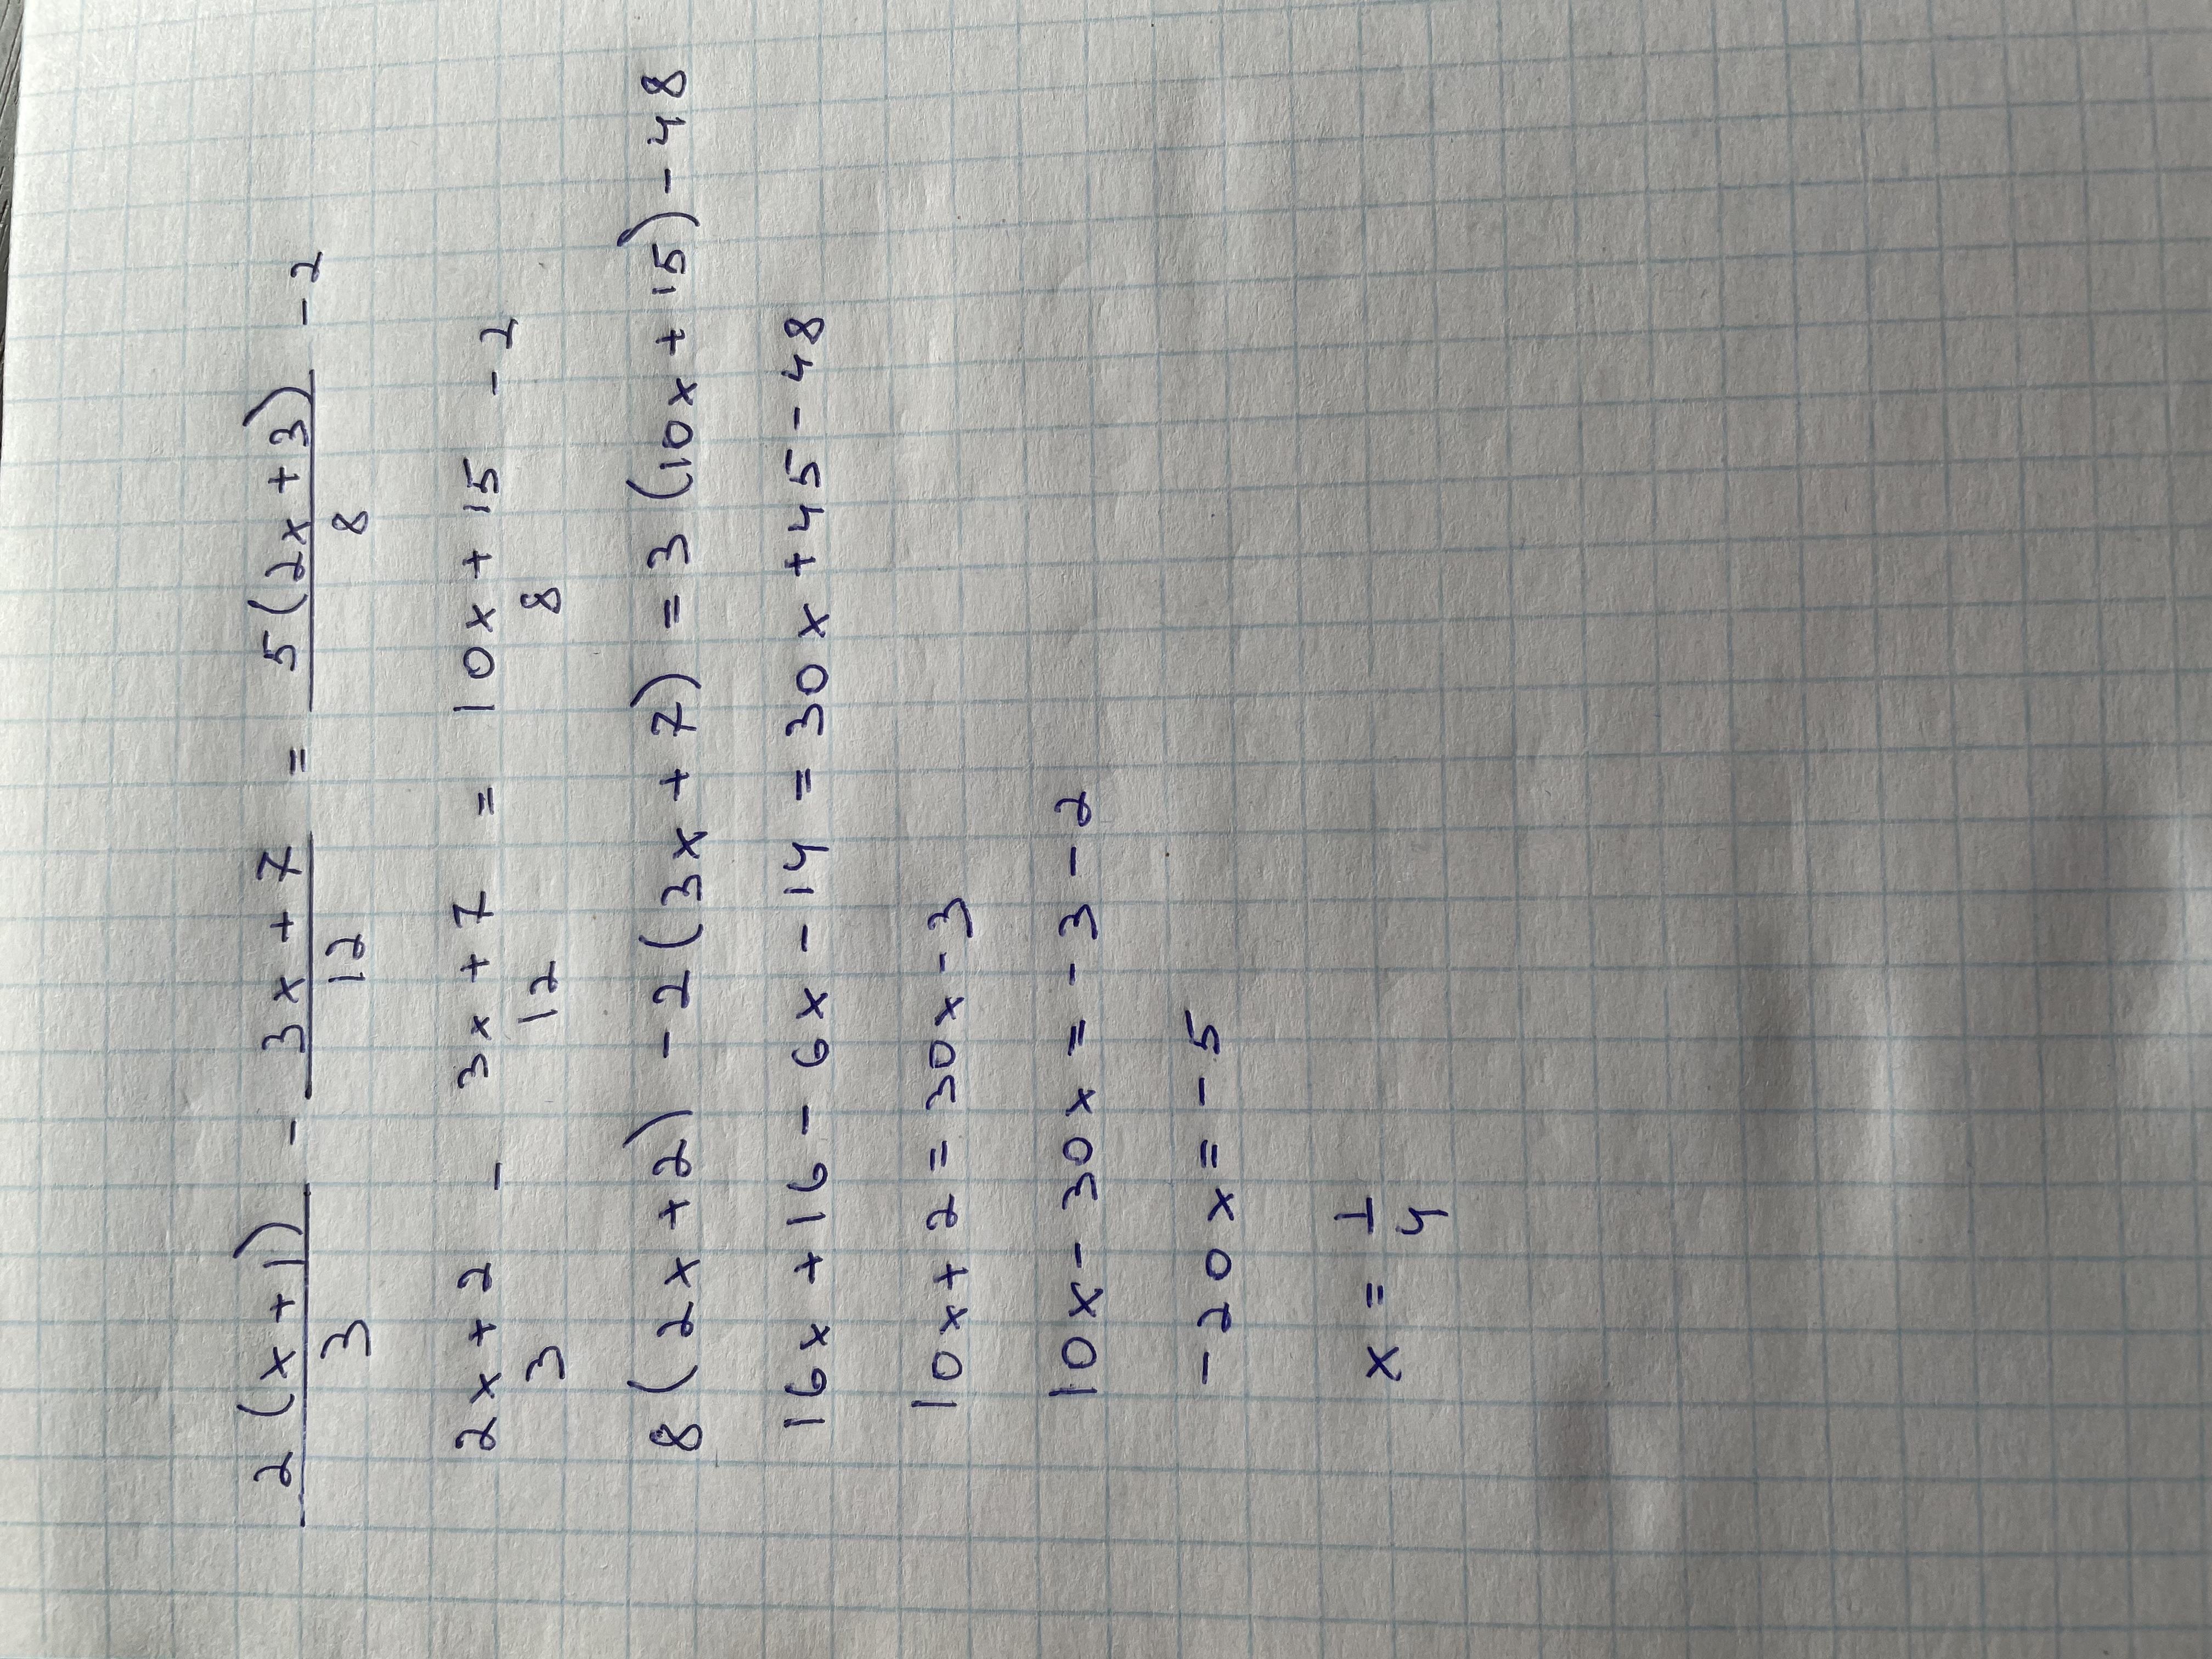 2(x+1)/3 - 3x+7/12 = 5(2x+3)/8 - 2
2x+2/3 - 3x+7/12 = 10x+15/8 - 2
8(2x+2) - 2(3x+7) = 3(10x+15) - 48
16x + 16 - 6x - 14 = 30x + 45 - 48
10x + 2 = 30x - 3
10x - 30x = -3 - 2
-20x = -5
x = 1/4